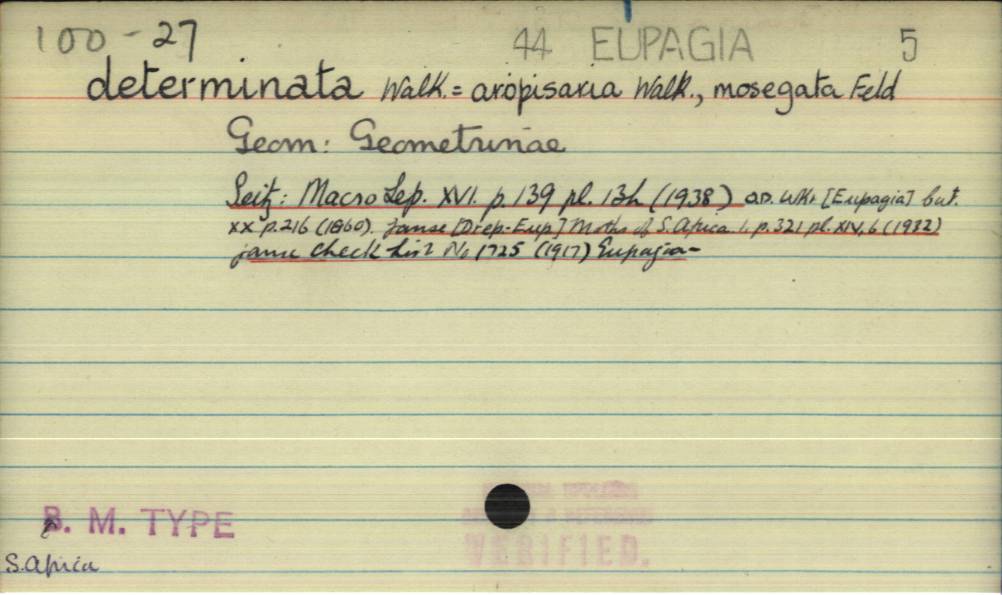 100-27 44 EUPAGIA 5
determinata Walk. = aropisaria Walk., mosegata Feld
Geom: Geometrinae
Seitz: Macro Lep. XVI. p. 139 pl. 13h (1938) [Eupagia]
XX p.216 (1860). Janse [Drep-Eup] Moths of S. Africa 1. p.321 pl. XIV, 6 (1932)
Janse Check List No 1725 (1917) Eupagia-
B. M. TYPE
VERIFIED.
S. Africa